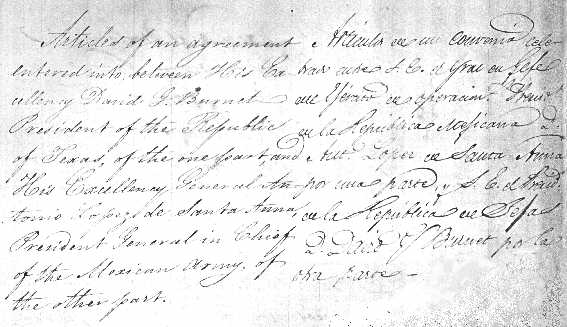 Articles of an agreement
entered into, between His Ex
cellency David G. Burnet
President of the Republic
of Texas, of the one part, and
His Excellency General An-
tonio Lopez de Santa Anna
President General in Chief
of the Mexican Army, of
the other part.
Articulos de un convenio cele-
brado entre S. E. el Gral en Gefe
del Ejército de operaciones
en la República Mejicana D.
Ant. Lopez de Santa Anna
por una parte, y S. E. el
de la República de Tejas
D. Burnet por la
otra parte –